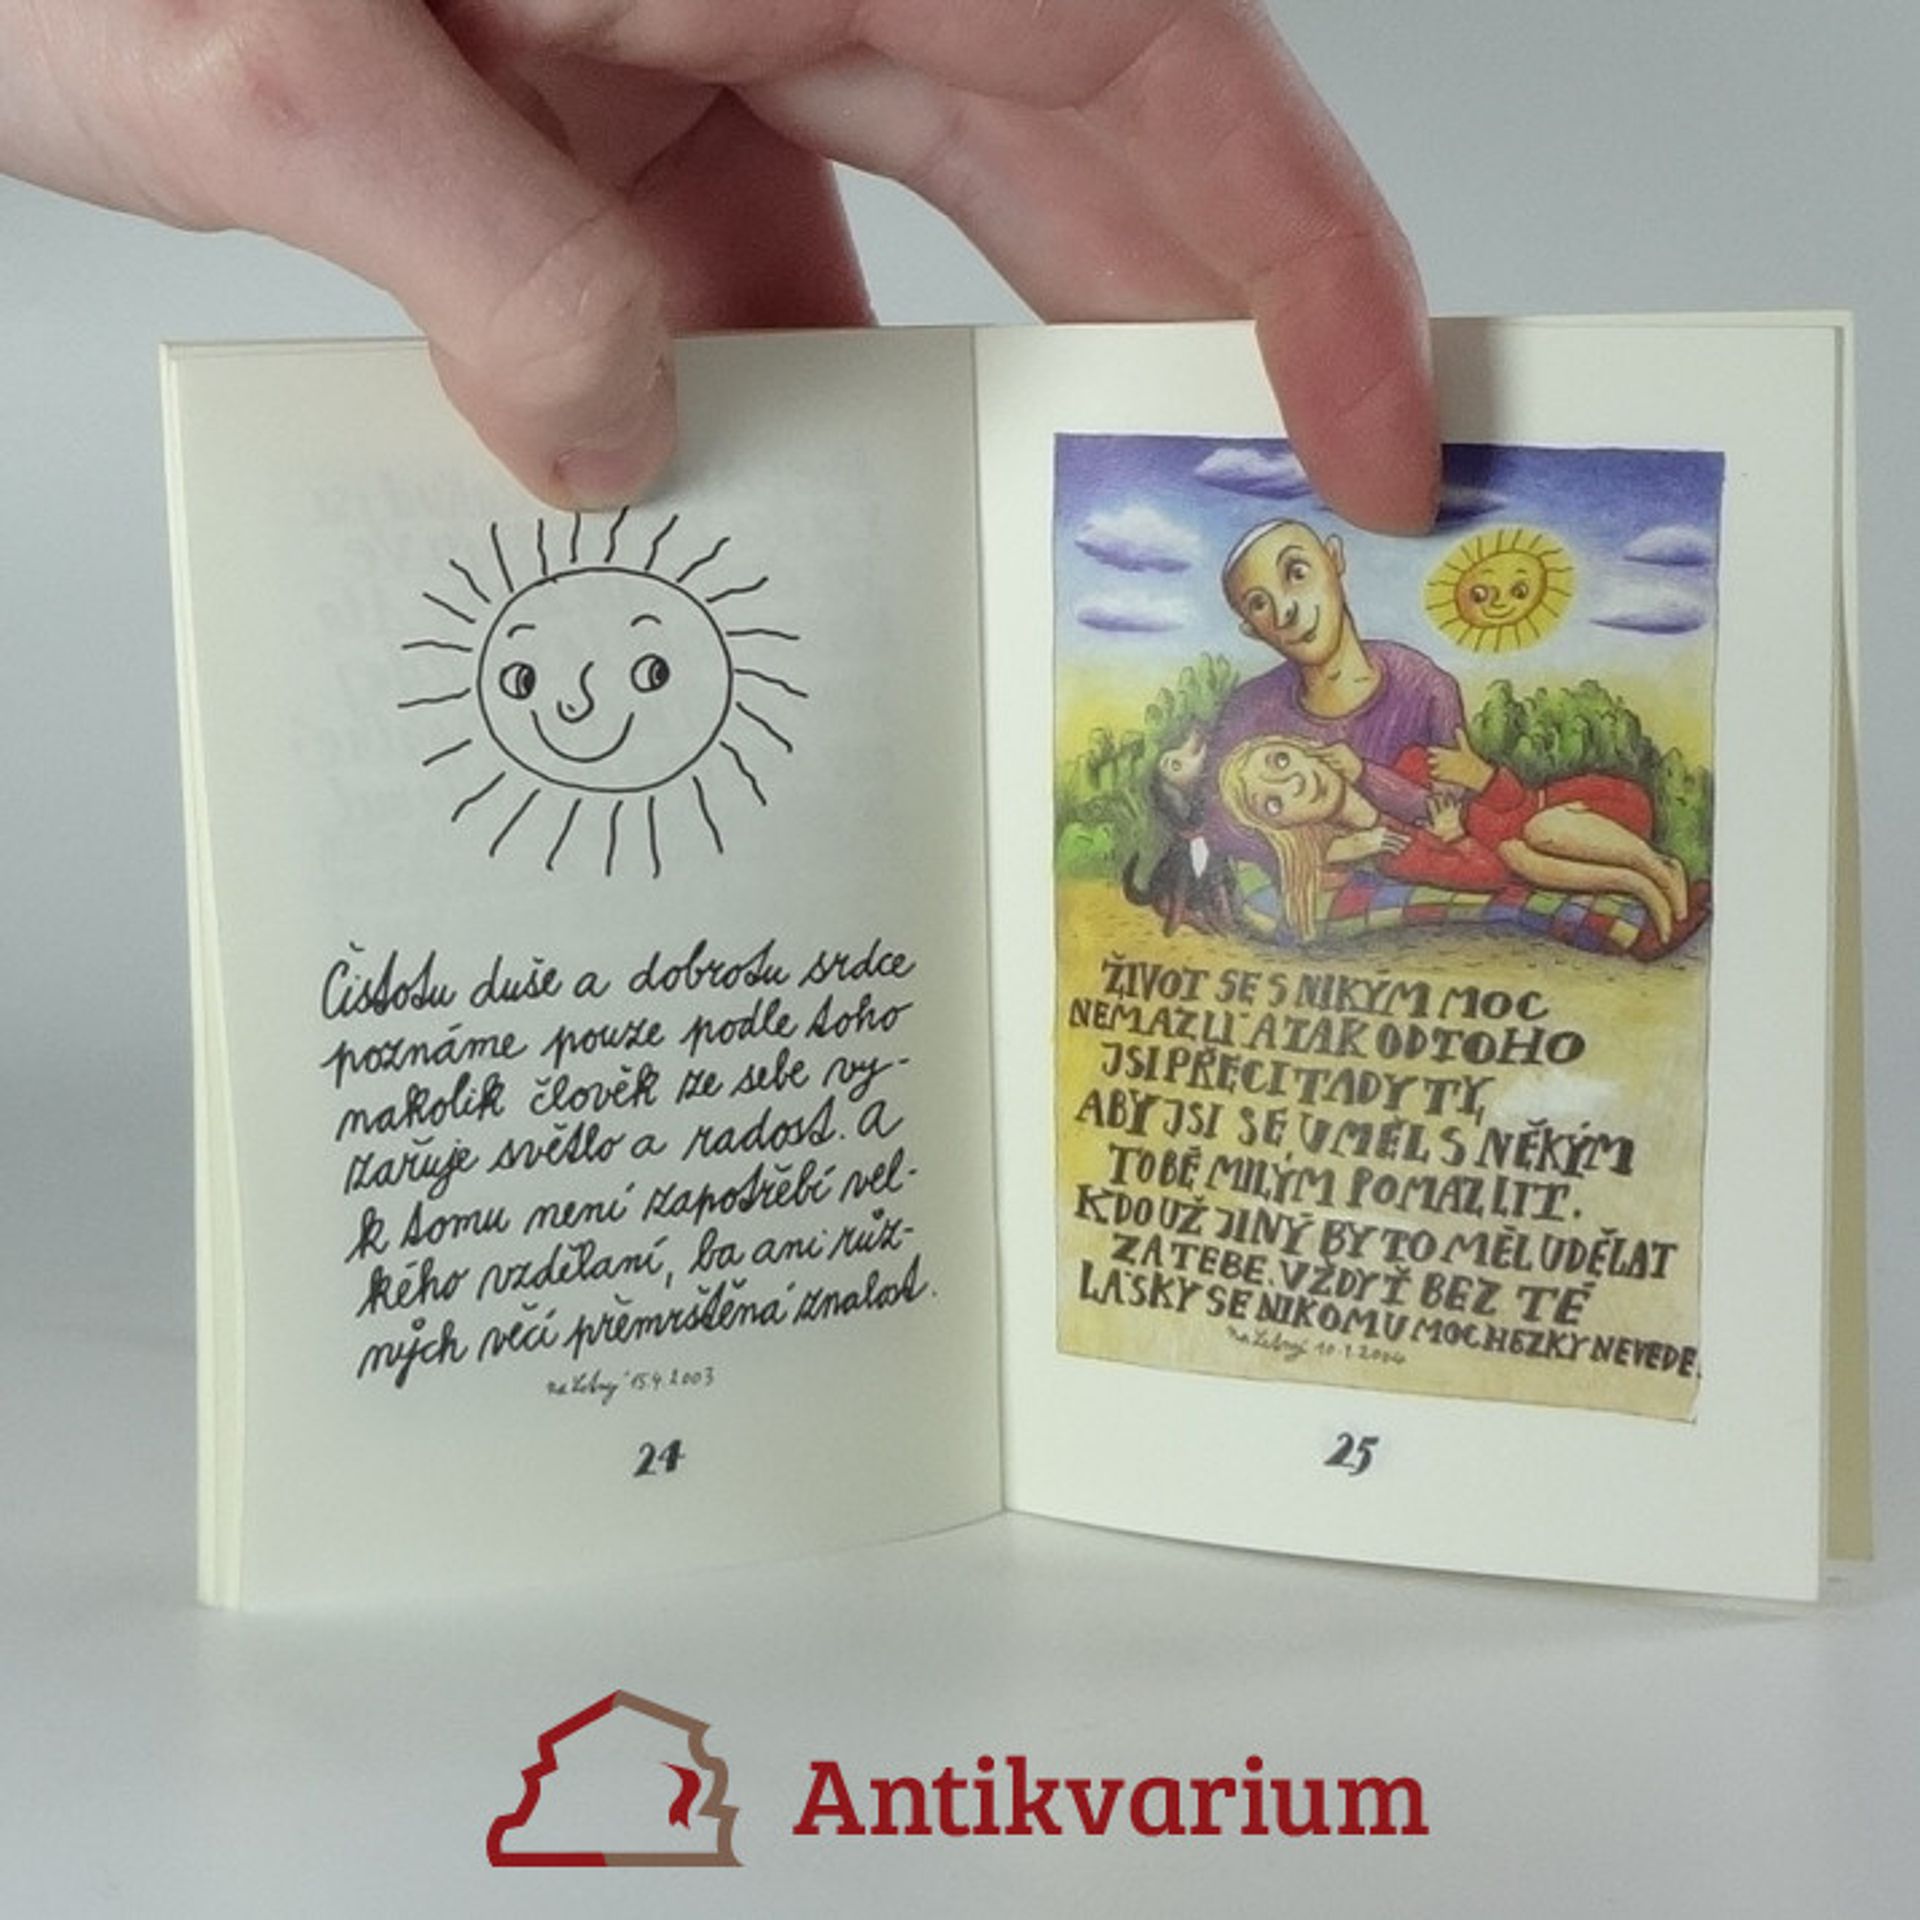 Čistotu duše a dobrotu srdce
poznáme pouze podle toho
nakolik člověk ze sebe vy-
zařuje světlo a radost. A
k tomu není zapotřebí vel-
kého vzdělaní, ba ani růz-
ných věcí přemrštěná znalost.
na Letný 15.4.2003
24
ŽIVOT SE S NIKÝM MOC
NEMAZLÍ A TAK OD TOHO
JSI PŘECI TADY TY,
ABY JSI SE UMĚL S NĚKÝM
TOBĚ MILÝM POMAZLIT.
KDO UŽ JINÝ BY TO MĚL UDĚLAT
ZA TEBE. VŽDYŤ BEZ TÉ
LÁSKY SE NIKOMU MOC HEZKY NEVEDE.
na Letný 10.1.2004
25
Antikvarium